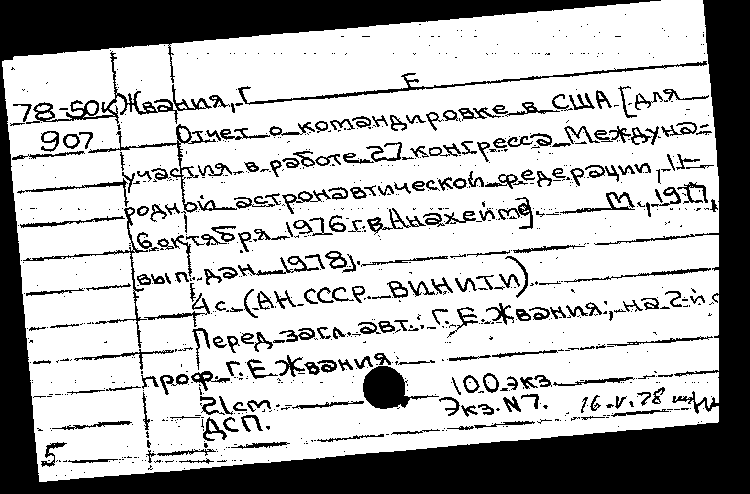 78-50к Жвания, Г Е
907 Отчет о командировке в США [для
участия в работе 27 конгресса Междуна=
родной астронавтической федерации, 11-
16 октября 1976 г. в Анахейме]. М., 1977,
вып. дан. 1978].
4 с. (АН СССР ВИНИТИ)
Перед загл. авт.: Г. Е. Жвания; на 2-й с
проф. Г. Е. Жвания.
21 см. 100 экз.
ДСП. Экз. N 7. 16.V.78
5